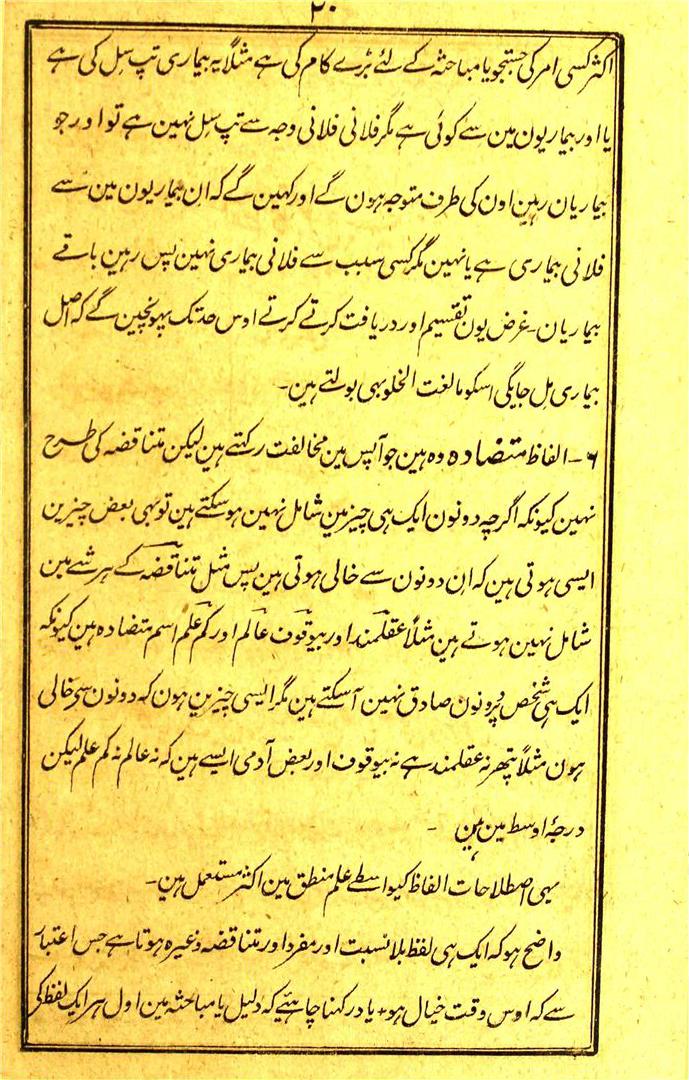 ۲۰
اکثر کسی امر کی جستجو یا مباحثہ کے لئے بڑے کام کی ہے مثلاً یہ بیماری تپ سل کی ہے
یا اور بیماریون مین سے کوئی ہے مگر فلانی فلانی وجہ سے تپ سل نہین ہے تو اور جو
بیماریان رہین اون کی طرف متوجہ ہون گے اور کہین گے کہ ان بیماریون مین سے
فلانی بیماری ہے یا نہین مگر کسی سبب سے فلانی بیماری نہین پس رہین باقے
بیماریان۔ غرض یون تقسیم اور دریافت کرتے کرتے اوس حد تک پہونچین گے کہ اصل
بیماری مل جایگی اسکو مالغت الخلو بہی بولتے ہین۔
۶۔ الفاظ متضادہ وہ ہین جو آپس مین مخالفت رکتے ہین لیکن متناقضہ کی طرح
نہین کیونکہ اگرچہ دونون ایک ہی چیز مین شامل نہین ہو سکتے ہین تو بہی بعض چیزین
ایسی ہوتی ہین کہ ان دونون سے خالی ہوتی ہین پس مثل تناقضہ کے ہر شے مین
شامل نہین ہوتے ہین مثلاً عقلمند اور بیوقوف عالم اور کم علم اسم متضادہ ہین کیونکہ
ایک ہی شخص پر دونون صادق نہین آسکتے ہین مگر ایسی چیزین ہون کہ دونون سی خالی
ہون مثلاً پتھر نہ عقلمند ہے نہ بیوقوف اور بعض آدمی ایسے ہین کہ نہ عالم نہ کم علم لیکن
درجۂ اوسط مین ہین ۔
یہی اصطلاحات الفاظ کیواسطے علم منطق مین اکثر مستعمل ہین۔
واضح ہو کہ ایک ہی لفظ بلا نسبت اور مفرد اور تناقضہ وغیرہ ہوتا ہے جس اعتبار
سے کہ اوس وقت خیال ہو۔ یاد رکھنا چاہئیے کہ دلیل یا مباحثہ مین اول ہر ایک لفظ کی